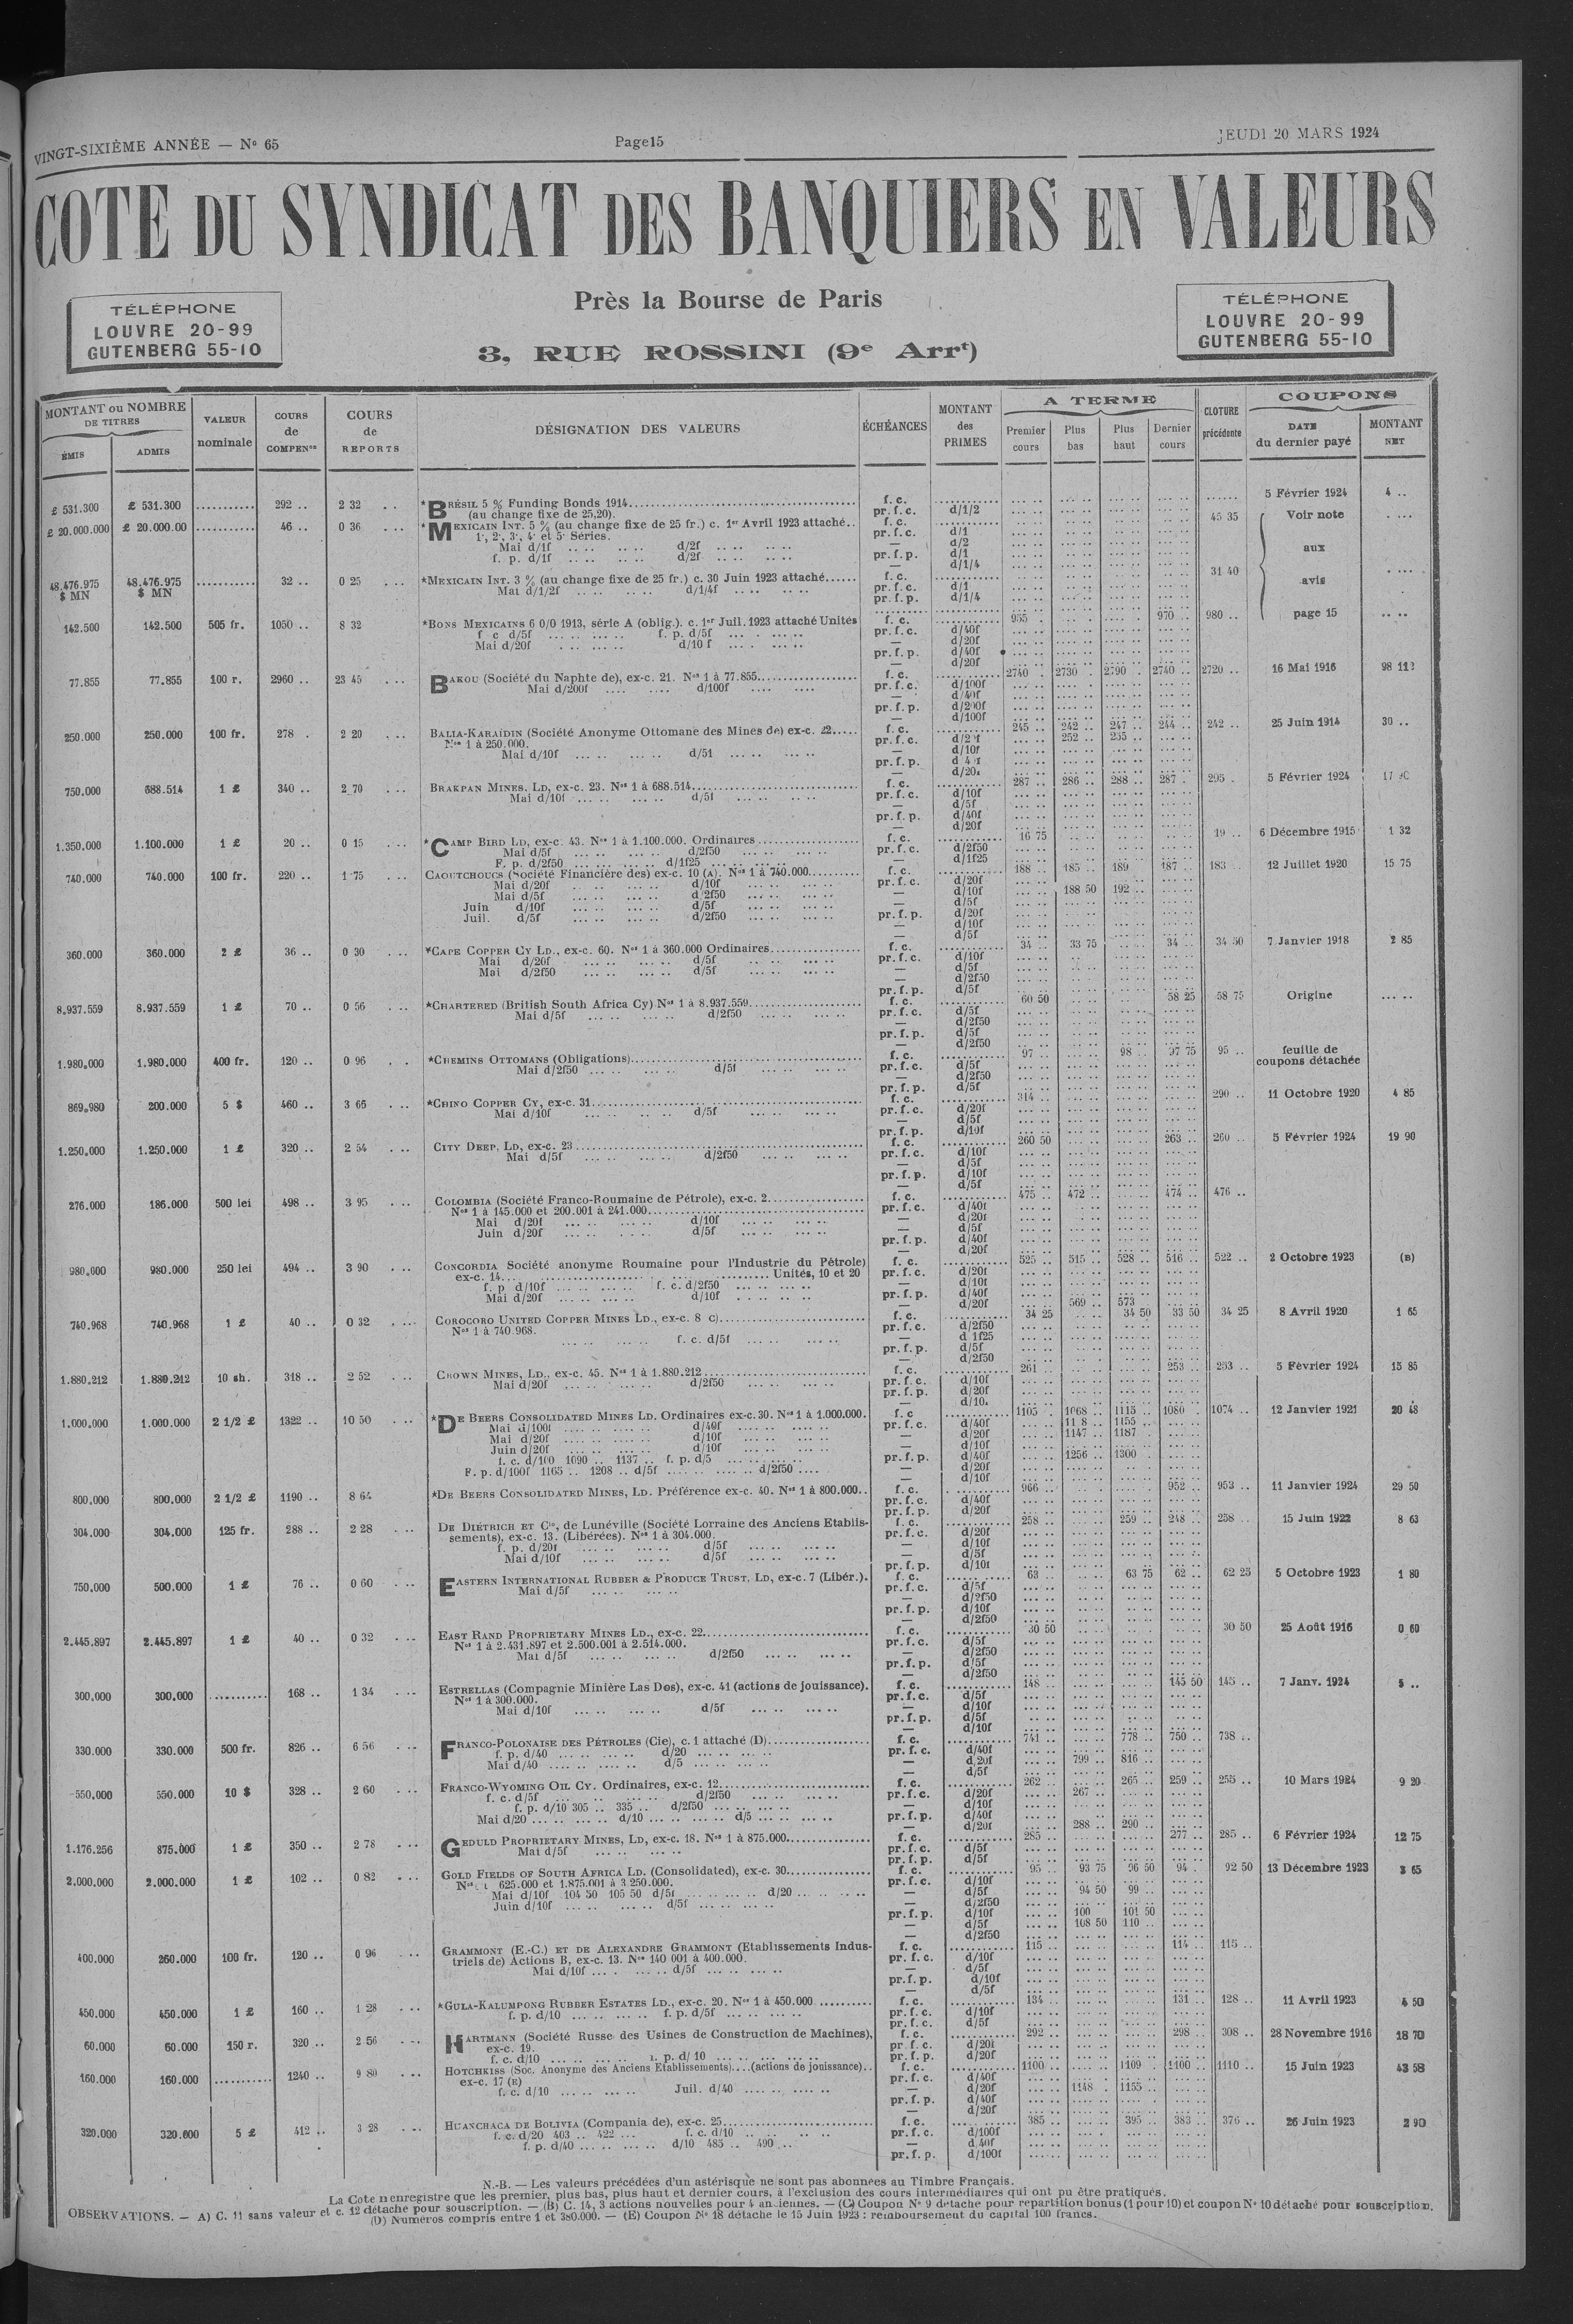 VINGT-SIXIÈME ANNÉE — N° 65
Page 15
JEUDI 20 MARS 1924
COTE DU SYNDICAT DES BANQUIERS EN VALEURS
Près la Bourse de Paris
3, RUE ROSSINI (9e Arrt)
TÉLÉPHONE
LOUVRE 20-99
GUTENBERG 55-10
TÉLÉPHONE
LOUVRE 20-99
GUTENBERG 55-10
MONTANT ou NOMBRE DE TITRES
ÉMIS
ADMIS
VALEUR nominale
COURS de COMPENon
COURS de REPORTS
DÉSIGNATION DES VALEURS
ÉCHÉANCES
MONTANT des PRIMES
A TERME
Premier cours
Plus bas
Plus haut
Dernier cours
CLOTURE précédente
COUPONS
DATE du dernier payé
MONTANT NET
£ 531.300 £ 531.300 292 .. 2 32 *BRÉSIL 5 % Funding Bonds 1914 f. c. 5 Février 1924 4 ..
(au change fixe de 25,20). pr. f. c. d/1/2
£ 20.000.000 £ 20.000.00 46 .. 0 36 *MEXICAIN INT. 5 % (au change fixe de 25 fr.) c. 1er Avril 1923 attaché.. f. c. 45 35 Voir note
1°, 2°, 3°, 4° et 5° Séries. pr. f. c. d/1
Mai d/1f d/2f — d/2
f. p. d/1f d/2f pr. f. p. d/1 aux
— d/1/4
48.476.975 $ MN 48.476.975 $ MN 32 .. 0 25 *MEXICAIN INT. 3 % (au change fixe de 25 fr.) c. 30 Juin 1923 attaché f. c. 31 40 avis
Mai d/1/2f d/1/4f pr. f. c. d/1
pr. f. p. d/1/4
142.500 142.500 505 fr. 1050 .. 8 32 *BONS MEXICAINS 6 0/0 1913, série A (oblig.). c. 1er Juil. 1923 attaché Unités f. c. 955 970 .. 980 .. page 15
f c d/5f f. p. d/5f pr. f. c. d/40f
Mai d/20f d/10 f — d/20f
pr. f. p. d/40f
— d/20f
77.855 77.855 100 r. 2960 .. 23 45 BAKOU (Société du Naphte de), ex-c. 21. Nos 1 à 77.855 f. c. 2740 2730 .. 2790 2740 .. 2720 .. 16 Mai 1916 98 112
Mai d/200f d/100f pr. f. c. d/100f
— d/40f
pr. f. p. d/200f
— d/100f
250.000 250.000 100 fr. 278 . 2 20 BALIA-KARAÏDIN (Société Anonyme Ottomane des Mines de) ex-c. 22 f. c. 245 .. 242 .. 247 .. 244 .. 242 .. 25 Juin 1914 30 ..
Nos 1 à 250.000. pr. f. c. 252 .. 255 ..
Mai d/10f d/51 — d/10f
pr. f. p.
— d/20f
750.000 688.514 1 £ 340 .. 2 70 BRAKPAN MINES, LD, ex-c. 23. Nos 1 à 688.514 f. c. 287 .. 286 .. 288 .. 287 . 295 . 5 Février 1924
Mai d/10f d/5f pr. f. c. d/10f
— d/5f
pr. f. p. d/40f
— d/20f
1.350.000 1.100.000 1 £ 20 .. 0 15 *CAMP BIRD LD, ex-c. 43. Nos 1 à 1.100.000. Ordinaires f. c. 16 75 19 .. 6 Décembre 1915 1 32
Mai d/5f d/2f50 pr. f. c. d/2f50
F. p. d/2f50 d/1f25 — d/1f25
740.000 740.000 100 fr. 220 .. 1 75 CAOUTCHOUCS (Société Financière des) ex-c. 10 (A). Nos 1 à 740.000 f. c. 188 .. 185 .. 189 187 .. 183 .. 12 Juillet 1920 15 75
Mai d/20f d/10f pr. f. c. d/20f
Mai d/5f d/2f50 — d/10f 188 50 192 ..
Juin d/10f d/5f — d/5f
Juil. d/5f d/2f50 pr. f. p. d/20f
— d/10f
— d/5f
360.000 360.000 2 £ 36 .. 0 30 *CAPE COPPER CY LD., ex-c. 60. Nos 1 à 360.000 Ordinaires f. c. 34 .. 33 75 34 .. 34 50 7 Janvier 1918 2 85
Mai d/20f d/5f pr. f. c. d/10f
Mai d/2f50 d/5f — d/5f
— d/2f50
pr. f. p. d/5f
8.937.559 8.937.559 1 £ 70 .. 0 56 *CHARTERED (British South Africa Cy) Nos 1 à 8.937.559 f. c. 60 50 58 25 58 75 Origine
Mai d/5f d/2f50 pr. f. c. d/5f
— d/2f50
pr. f. p. d/5f
— d/2f50
1.980.000 1.980.000 400 fr. 120 .. 0 96 *CHEMINS OTTOMANS (Obligations) f. c. 97 .. 98 .. 97 75 95 .. feuille de coupons détachée
Mai d/2f50 d/5f pr. f. c. d/5f
— d/2f50
pr. f. p. d/5f
869.980 200.000 5 $ 460 .. 3 66 *CHINO COPPER CY, ex-c. 31 f. c. 314 .. 290 .. 11 Octobre 1920 4 85
Mai d/10f d/5f pr. f. c. d/20f
— d/5f
pr. f. p. d/10f
1.250.000 1.250.000 1 £ 320 .. 2 54 CITY DEEP, LD, ex-c. 23 f. c. 260 50 263 .. 260 .. 5 Février 1924 19 90
Mai d/5f d/2f50 pr. f. c. d/10f
— d/5f
pr. f. p. d/10f
— d/5f
276.000 186.000 500 lei 498 .. 3 95 COLOMBIA (Société Franco-Roumaine de Pétrole), ex-c. 2 f. c. 475 .. 472 .. 474 .. 476 ..
Nos 1 à 145.000 et 200.001 à 241.000 pr. f. c. d/40f
Mai d/20f d/10f — d/20f
Juin d/20f d/5f — d/5f
pr. f. p. d/40f
— d/20f
980.000 980.000 250 lei 494 .. 3 90 CONCORDIA Société anonyme Roumaine pour l'Industrie du Pétrole) f. c. 525 515 .. 528 .. 516 .. 522 .. 2 Octobre 1923 (B)
ex-c. 14 Unités, 10 et 20 pr. f. c. d/20f
f. p d/10f f. c. d/2f50 — d/10f
Mai d/20f d/10f pr. f. p. d/40f
— d/20f 569 .. 573
740.968 740.968 1 £ 40 .. 0 32 COROCORO UNITED COPPER MINES LD., ex-c. 8 C) f. c. 34 25 34 50 33 50 34 25 8 Avril 1920 1 65
Nos 1 à 740.968. pr. f. c. d/2f50
f. c. d/5f — d 1f25
pr. f. p. d/5f
— d/2f50
1.880.212 1.880.212 10 sh. 318 .. 2 52 CROWN MINES, LD., ex-c. 45. Nos 1 à 1.880.212 f. c. 261 253 .. 5 Février 1924 15 85
Mai d/20f d/2f50 pr. f. c. d/10f
pr. f. p. d/20f
— d/10.
1.000.000 1.000.000 2 1/2 £ 1322 .. 10 50 *DE BEERS CONSOLIDATED MINES LD. Ordinaires ex-c. 30. Nos 1 à 1.000.000. f. c 1105 . 1068 .. 1115 .. 1080 .. 1074 .. 12 Janvier 1921 20 48
Mai d/100f d/40f pr. f. c. d/40f 1155 ..
Mai d/20f d/10f — d/20f 1147 .. 1187
Juin d/20f d/10f — d/10f
f. c. d/100 1090 .. 1137 .. f. p. d/5 pr. f. p. d/40f 1256 .. 1300
F. p. d/100f 1165 .. 1208 .. d/5f d/2f50 — d/20f
— d/10f
800.000 800.000 2 1/2 £ 1190 .. 8 64 *DE BEERS CONSOLIDATED MINES, LD. Préférence ex-c. 40. Nos 1 à 800.000.. f. c. 966 .. 952 .. 953 .. 11 Janvier 1924 29 50
pr. f. c. d/40f
pr. f. p. d/20f
304.000 304.000 125 fr. 288 .. 2 28 DE DIÉTRICH ET Cie, de Lunéville (Société Lorraine des Anciens Etablis- f. c. 258 .. 259 .. 248 .. 258 .. 15 Juin 1922 8 63
sements), ex-c. 13. (Libérées). Nos 1 à 304.000. pr. f. c. d/20f
f. p. d/20f d/5f — d/10f
Mai d/10f d/5f — d/5f
pr. f. p. d/10f
750.000 500.000 1 £ 76 .. 0 60 EASTERN INTERNATIONAL RUBBER & PRODUCE TRUST, LD, ex-c. 7 (Libér.). f. c. 63 .. 63 75 62 .. 62 25 5 Octobre 1923 1 80
Mai d/5f pr. f. c. d/5f
— d/2f50
pr. f. p. d/10f
— d/2f50
2.445.897 2.445.897 1 £ 40 .. 0 32 EAST RAND PROPRIETARY MINES LD., ex-c. 22 f. c. 30 50 30 50 25 Août 1916 0 60
Nos 1 à 2.431.897 et 2.500.001 à 2.514.000. pr. f. c. d/5f
Mai d/5f d/2f50 — d/2f50
pr. f. p. d/5f
— d/2f50
300.000 300.000 168 .. 1 34 ESTRELLAS (Compagnie Minière Las Dos), ex-c. 41 (actions de jouissance). f. c. 148 .. 145 50 145 .. 7 Janv. 1924 5 ..
Nos 1 à 300.000. pr. f. c. d/5f
Mai d/10f d/5f — d/10f
pr. f. p. d/5f
— d/10f
330.000 330.000 500 fr. 826 .. 6 56 FRANCO-POLONAISE DES PÉTROLES (Cie), c. 1 attaché (D) f. c. 741 .. 778 .. 750 .. 738 ..
f. p. d/40 d/20 pr. f. c. d/40f
Mai d/40 d/5 — d 20f 799 .. 816 ..
— d/5f
550.000 550.000 10 $ 328 .. 2 60 FRANCO-WYOMING OIL CY. Ordinaires, ex-c. 12 f. c. 262 .. 265 .. 259 .. 255 .. 10 Mars 1924 9 20
f. c. d/5f d/2f50 pr. f. c. d/20f 267 ..
f. p. d/10 305 .. 335 .. d/2f50 — d/10f
Mai d/20 d/10 d/5 pr. f. p. d/40f
— d/20f 288 .. 290 ..
1.176.256 875.000 1 £ 350 .. 2 78 GEDULD PROPRIETARY MINES, LD, ex-c. 18. Nos 1 à 875.000 f. c. 285 .. 277 .. 285 .. 6 Février 1924 12 75
Mai d/5f pr. f. c. d/5f
pr. f. p. d/5f
2.000.000 2.000.000 1 £ 102 .. 0 82 GOLD FIELDS OF SOUTH AFRICA LD. (Consolidated), ex-c. 30 f. c. 95 .. 93 75 96 50 94 . 92 50 13 Décembre 1923 3 65
625.000 et 1.875.001 à 3 250.000. pr. f. c. d/10f
Mai d/10f 104 50 105 50 d/5f d/20 — d/5f 94 50 99 ..
Juin d/10f d/5f — d/2f50
pr. f. p. d/10f 100 101 50
— d/5f 108 50 110 ..
— d/2f50
400.000 260.000 100 fr. 120 .. 0 96 GRAMMONT (E.-C.) ET DE ALEXANDRE GRAMMONT (Etablissements Indus- f. c. 115 .. 114 .. 115 ..
triels de) Actions B, ex-c. 13. Nos 140 001 à 400.000. pr. f. c. d/10f
Mai d/10f d/5f — d/5f
pr. f. p. d/10f
— d/5f
450.000 450.000 1 £ 160 .. 1 28 *GULA-KALUMPONG RUBBER ESTATES LD., ex-c. 20. Nos 1 à 450.000 f. c. 134 .. 131 .. 128 .. 11 Avril 1923 4 50
f. p. d/10 f. p. d/5f pr. f. c. d/10f
pr. f. c. d/5f
60.000 60.000 150 r. 320 .. 2 56 HARTMANN (Société Russe des Usines de Construction de Machines), f. c. 292 .. 298 .. 308 .. 28 Novembre 1916 18 70
ex-c. 19. pr. f. c. d/20f
f. c. d/10 p. d/ 10 pr. f. p. d/20f
160.000 160.000 1240 .. 9 80 HOTCHKISS (Soc. Anonyme des Anciens Etablissements)....(actions de jouissance).. f. c. 1100 .. 1109 .. 1100 .. 1110 .. 15 Juin 1923 43 58
ex-c. 17 (E) pr. f. c. d/40f
f. c. d/10 Juil. d/40 — d/20f 1148 . 1155 ..
pr. f. p. d/40f
— d/20f
320.000 320.000 5 £ 412 .. 3 28 HUANCHACA DE BOLIVIA (Compania de), ex-c. 25 f. c. 385 .. 395 .. 383 .. 376 .. 26 Juin 1923 2 90
f. c. d/20 403 .. 422 ... f. c. d/10 pr. f. c. d/100f
f. p. d/40 d/10 485 .. 490 .. — d 40f
pr. f. p. d/100f
N.-B. — Les valeurs précédées d'un astérisque ne sont pas abonnées au Timbre Français.
La Cote n'enregistre que les premier, plus bas, plus haut et dernier cours, à l'exclusion des cours intermédiaires qui ont pu être pratiqués.
OBSERVATIONS. — A) C. 11 sans valeur et c. 12 détaché pour souscription. — (B) C. 14, 3 actions nouvelles pour 4 anciennes. — (C) Coupon N° 9 détaché pour repartition bonus (1 pour 10) et coupon N° 10 détaché pour souscription.
(D) Numéros compris entre 1 et 380.000. — (E) Coupon N° 18 détaché le 15 Juin 1923 : remboursement du capital 100 francs.